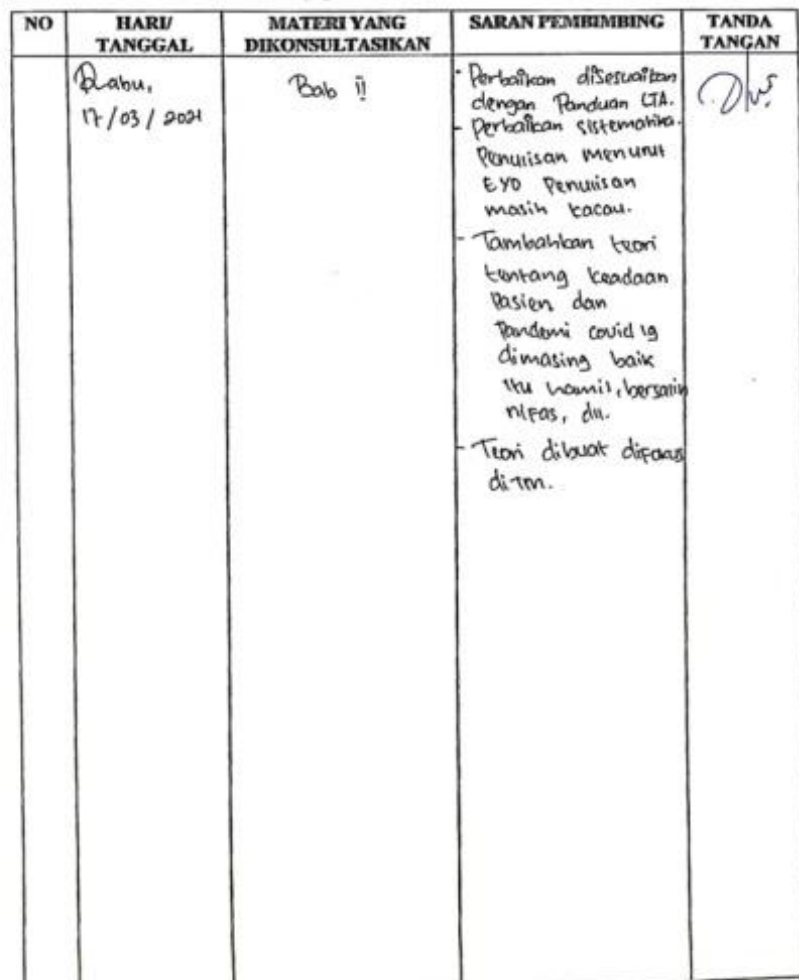 NO
HARI/
TANGGAL
MATERI YANG
DIKONSULTASIKAN
SARAN PEMBIMBING
TANDA
TANGAN
Rabu,
17/03/2021
Bab ii
- Perbaikan disesuaikan
dengan Panduan LTA.
- Perbaikan sistematika.
Penulisan menurut
EYD Penulisan
masih kacau.
- Tambahkan teori
tentang keadaan
Pasien dan
Pandemi covid 19
dimasing baik
itu hamil, bersalin
nifas, dll.
- Teori dibuat difokus